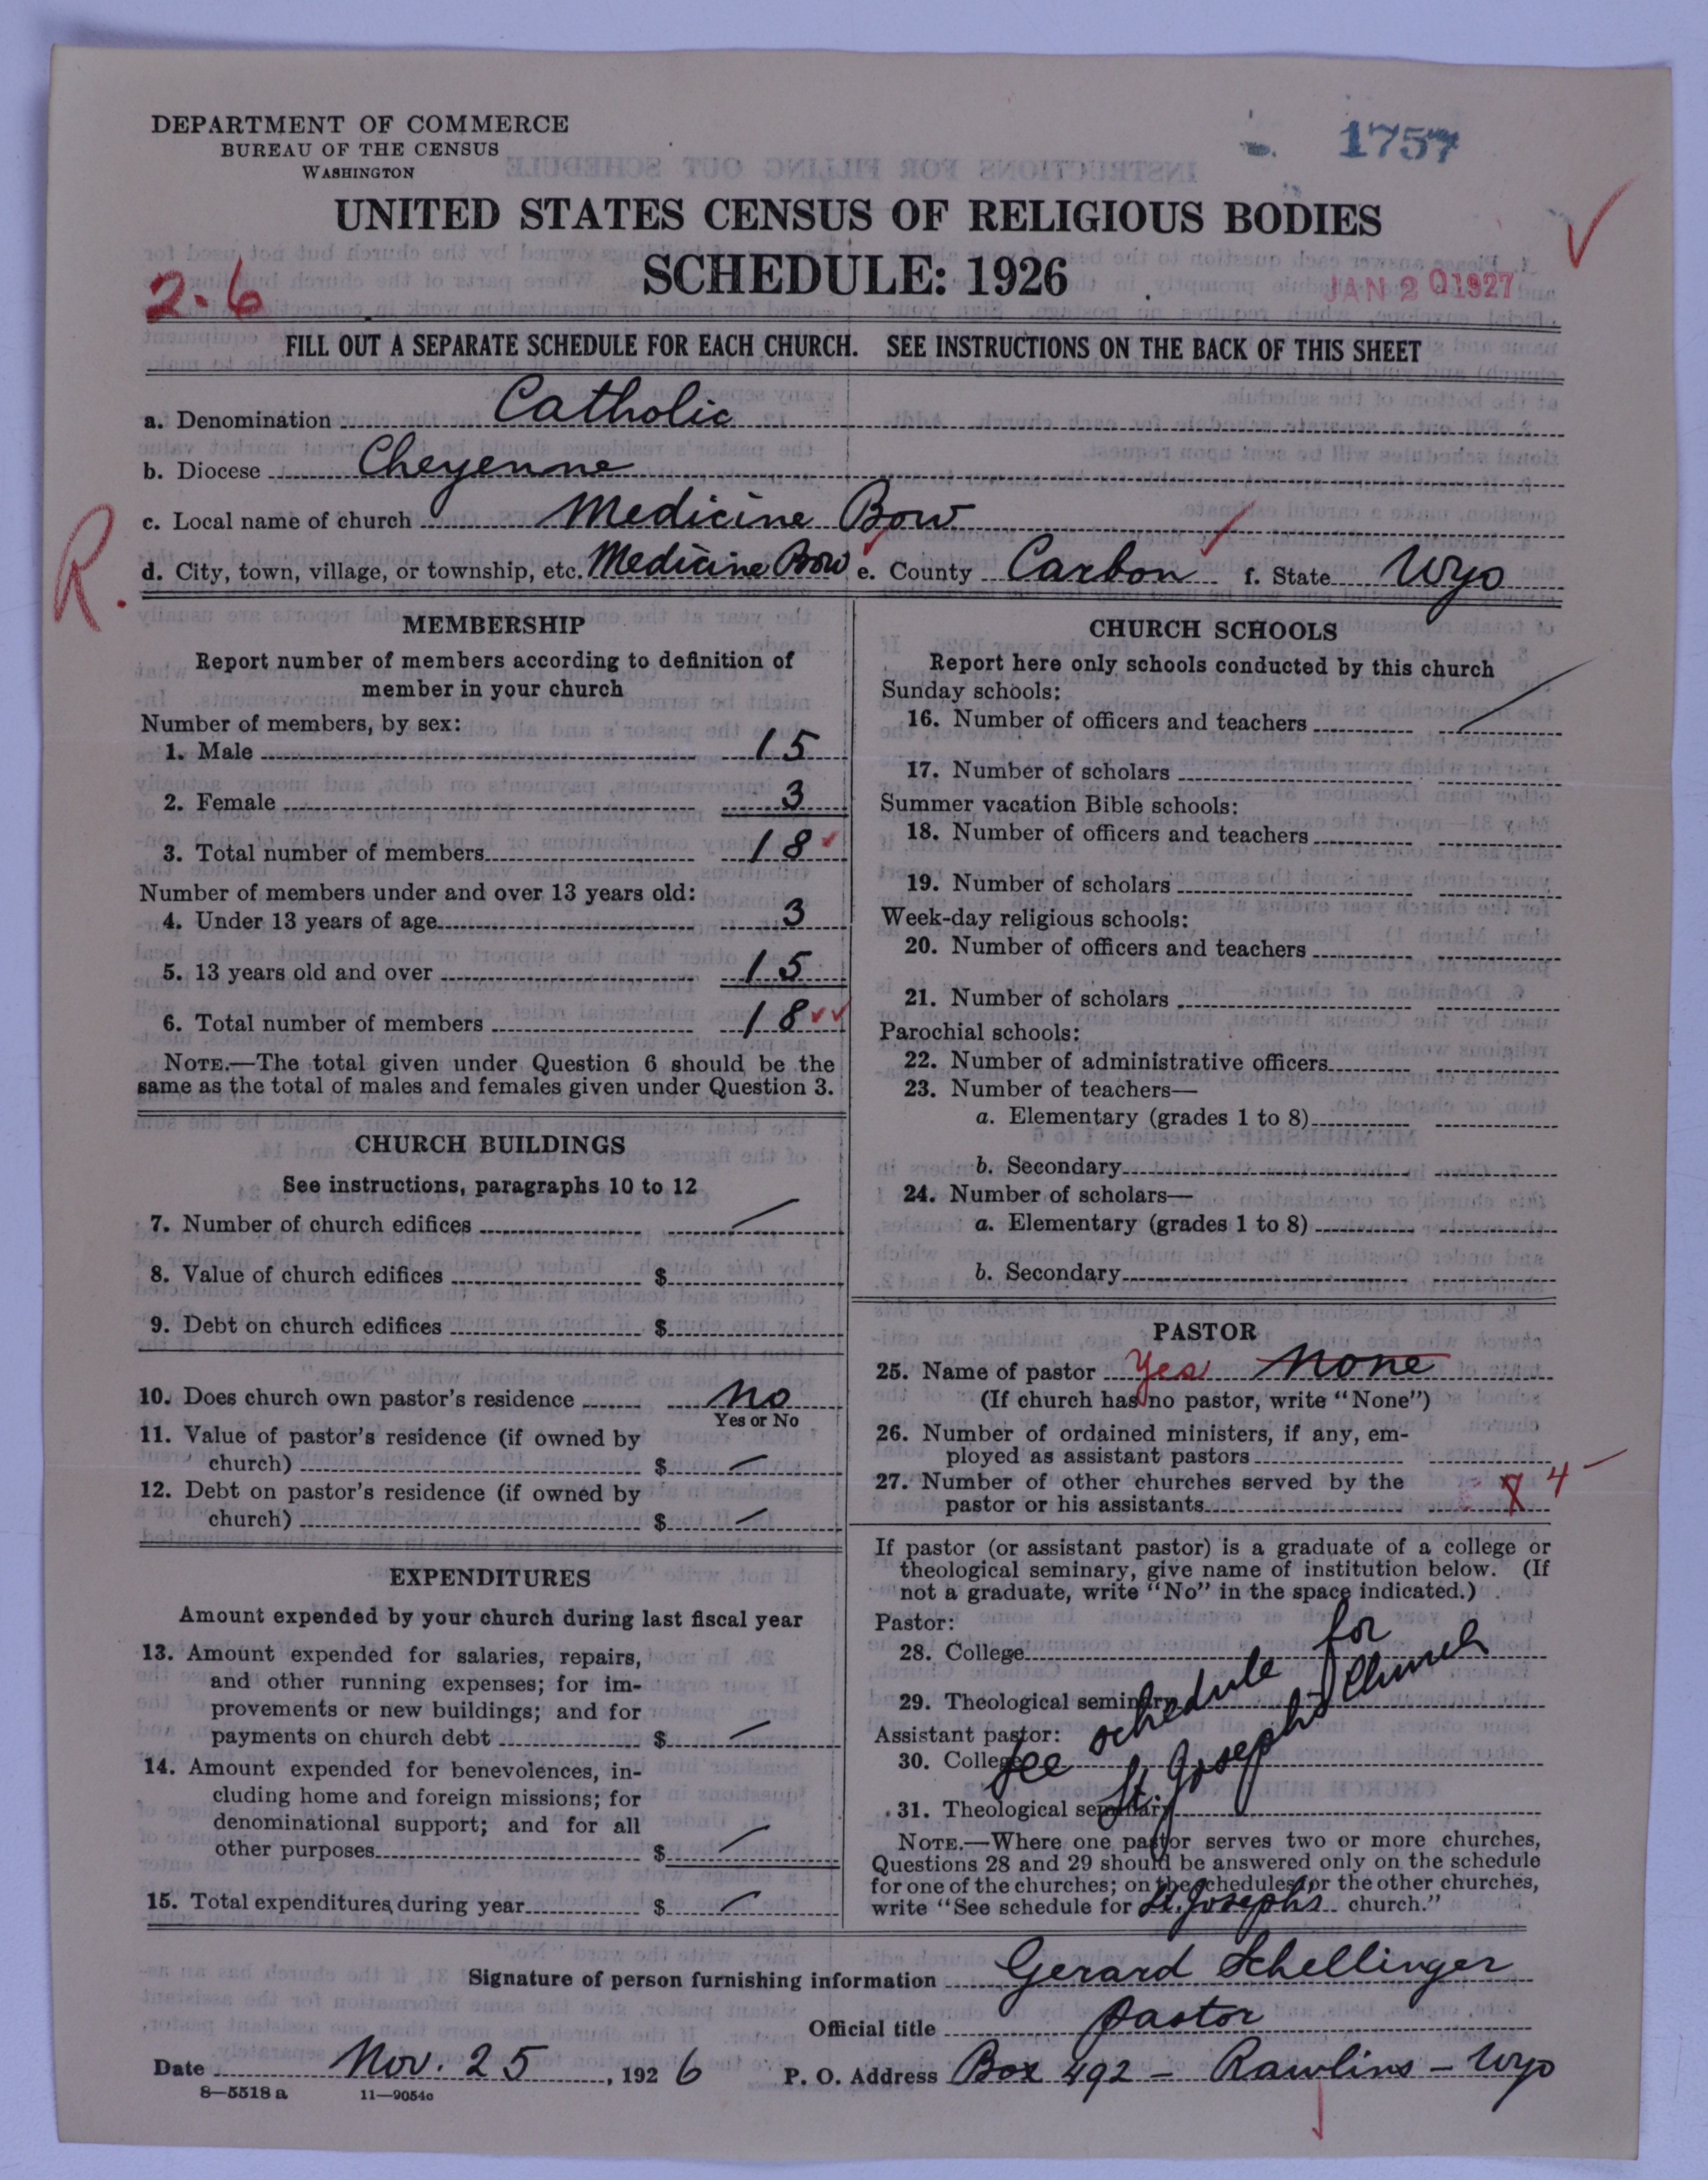 DEPARTMENT OF COMMERCE
BUREAU OF THE CENSUS
WASHINGTON
1757
UNITED STATES CENSUS OF RELIGIOUS BODIES
SCHEDULE: 1926
2-6
JAN 20 1927
FILL OUT A SEPARATE SCHEDULE FOR EACH CHURCH. SEE INSTRUCTIONS ON THE BACK OF THIS SHEET
a. Denomination Catholic
b. Diocese Cheyenne
c. Local name of church Medicine Bow
R.
d. City, town, village, or township, etc. Medicine Bow e. County Carbon f. State Wyo
MEMBERSHIP
Report number of members according to definition of
member in your church
Number of members, by sex:
1. Male 15
2. Female 3
3. Total number of members 18
Number of members under and over 13 years old:
4. Under 13 years of age 3
5. 13 years old and over 15
6. Total number of members 18
NOTE.—The total given under Question 6 should be the
same as the total of males and females given under Question 3.
CHURCH BUILDINGS
See instructions, paragraphs 10 to 12
7. Number of church edifices
8. Value of church edifices $
9. Debt on church edifices $
10. Does church own pastor's residence no
Yes or No
11. Value of pastor's residence (if owned by
church) $ —
12. Debt on pastor's residence (if owned by
church) $ —
EXPENDITURES
Amount expended by your church during last fiscal year
13. Amount expended for salaries, repairs,
and other running expenses; for im-
provements or new buildings; and for
payments on church debt $ —
14. Amount expended for benevolences, in-
cluding home and foreign missions; for
denominational support; and for all
other purposes $ —
15. Total expenditures during year $ —
CHURCH SCHOOLS
Report here only schools conducted by this church
Sunday schools:
16. Number of officers and teachers
17. Number of scholars
Summer vacation Bible schools:
18. Number of officers and teachers
19. Number of scholars
Week-day religious schools:
20. Number of officers and teachers
21. Number of scholars
Parochial schools:
22. Number of administrative officers
23. Number of teachers—
a. Elementary (grades 1 to 8)
b. Secondary
24. Number of scholars—
a. Elementary (grades 1 to 8)
b. Secondary
PASTOR
25. Name of pastor Yes None
(If church has no pastor, write "None")
26. Number of ordained ministers, if any, em-
ployed as assistant pastors
27. Number of other churches served by the
pastor or his assistants 4
If pastor (or assistant pastor) is a graduate of a college or
theological seminary, give name of institution below. (If
not a graduate, write "No" in the space indicated.)
Pastor:
28. College
29. Theological seminary
Assistant pastor:
30. College
31. Theological seminary
See schedule for
St. Joseph's Church
NOTE.—Where one pastor serves two or more churches,
Questions 28 and 29 should be answered only on the schedule
for one of the churches; on the schedules for the other churches,
write "See schedule for St. Joseph's church."
Signature of person furnishing information Gerard Schellinger
Official title pastor
Date Nov. 25, 1926 P. O. Address Box 492 - Rawlins - Wyo
8—5518 a 11—9054c